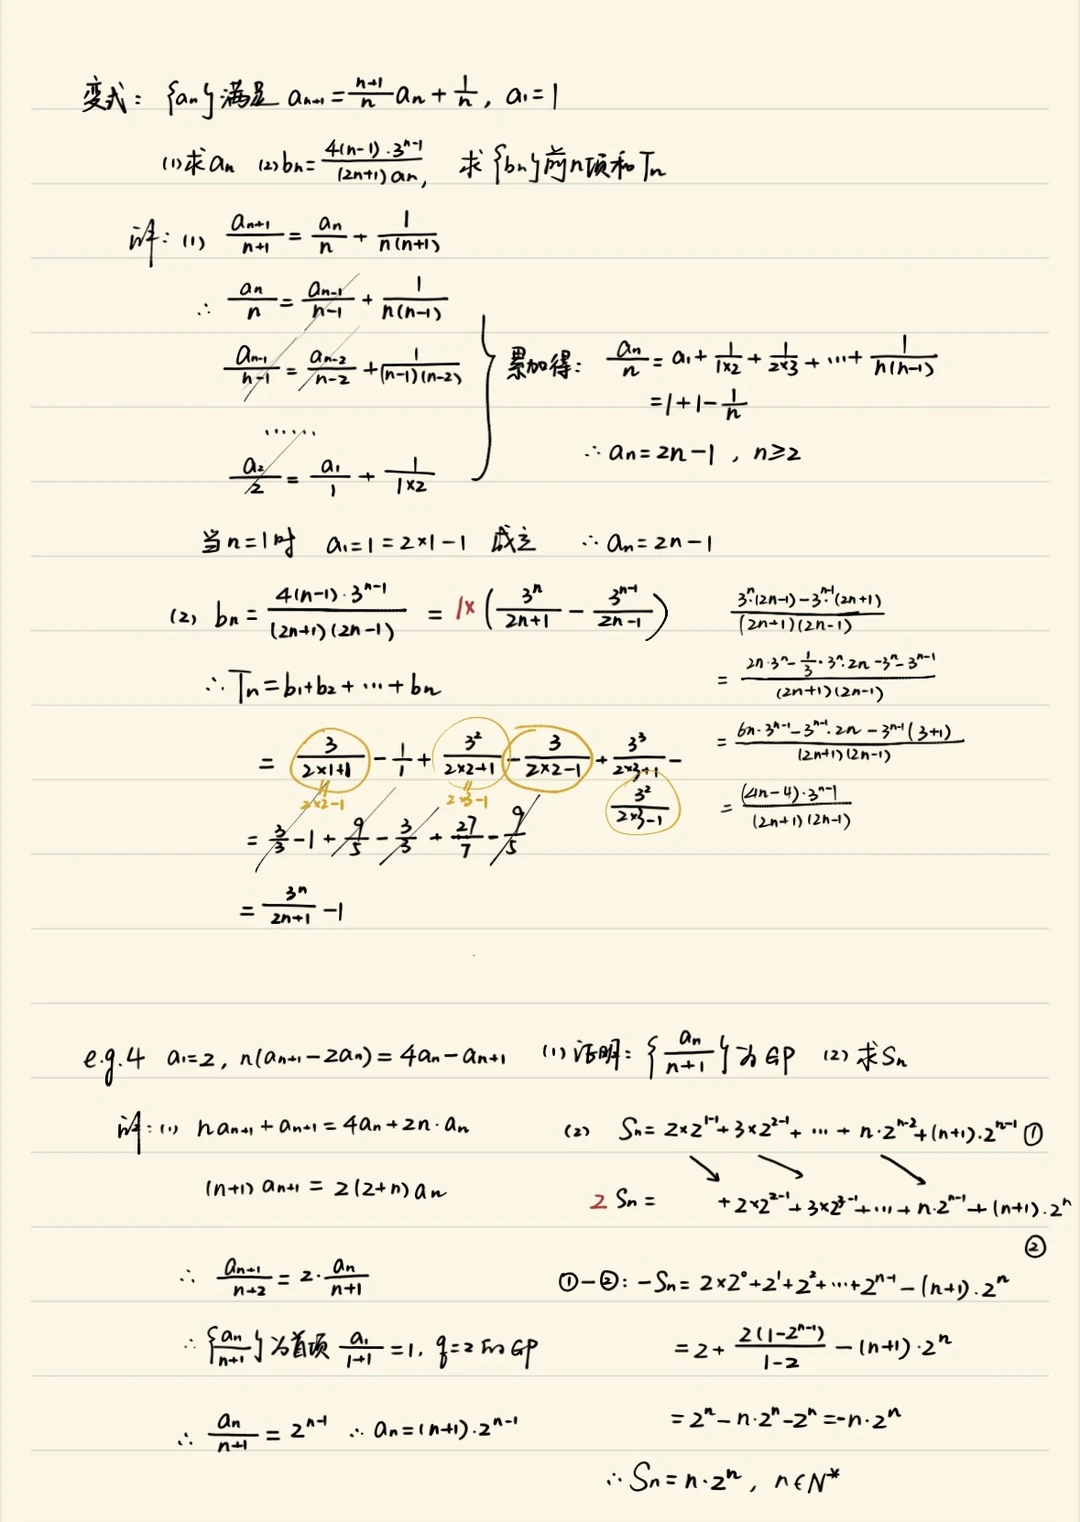 变式：{aₙ}满足 aₙ₊₁ = (n+1)/n aₙ + 1/n, a₁ = 1
(1)求aₙ (2)bₙ = 4(n-1)·3ⁿ⁻¹/(2n+1)aₙ, 求{bₙ}前n项和Tₙ
解：(1) aₙ₊₁/(n+1) = aₙ/n + 1/n(n+1)
∴ aₙ/n = aₙ₋₁/(n-1) + 1/n(n-1)
aₙ₋₁/(n-1) = aₙ₋₂/(n-2) + 1/(n-1)(n-2)
……
a₂/2 = a₁/1 + 1/1×2
累加得： aₙ/n = a₁ + 1/1×2 + 1/2×3 + ⋯ + 1/n(n-1)
= 1+1-1/n
∴ aₙ = 2n-1 , n≥2
当n=1时 a₁=1=2×1-1 成立 ∴ aₙ=2n-1
(2) bₙ = 4(n-1)·3ⁿ⁻¹/(2n+1)(2n-1) = 1×(3ⁿ/(2n+1) - 3ⁿ⁻¹/(2n-1))
∴ Tₙ = b₁+b₂+⋯+bₙ
= 3/(2×1+1) - 1/1 + 3²/(2×2+1) - 3/(2×2-1) + 3³/(2×3+1) -
2×2-1 2×3-1 3²/(2×3-1)
= 3/3 - 1 + 9/5 - 3/3 + 27/7 - 9/5
= 3ⁿ/(2n+1) - 1
3ⁿ·(2n-1)-3ⁿ⁻¹·(2n+1)/(2n+1)(2n-1)
= 2n·3ⁿ - 1/3·3ⁿ·2n - 3ⁿ - 3ⁿ⁻¹/(2n+1)(2n-1)
= 6n·3ⁿ⁻¹ - 3ⁿ⁻¹·2n - 3ⁿ⁻¹(3+1)/(2n+1)(2n-1)
= (4n-4)·3ⁿ⁻¹/(2n+1)(2n-1)
e.g.4 a₁=2, n(aₙ₊₁-2aₙ)=4aₙ-aₙ₊₁ (1)证明：{aₙ/(n+1)}为GP (2)求Sₙ
解：(1) naₙ₊₁+aₙ₊₁=4aₙ+2n·aₙ
(n+1)aₙ₊₁ = 2(2+n)aₙ
∴ aₙ₊₁/(n+2) = 2·aₙ/(n+1)
∴ {aₙ/(n+1)}为首项 a₁/(1+1) =1, q=2的GP
∴ aₙ/(n+1) = 2ⁿ⁻¹ ∴ aₙ=(n+1)·2ⁿ⁻¹
(2) Sₙ= 2×2¹⁻¹+3×2²⁻¹+ ⋯ + n·2ⁿ⁻²+(n+1)·2ⁿ⁻¹ ①
2 Sₙ = +2×2²⁻¹+3×2³⁻¹+⋯+n·2ⁿ⁻¹+(n+1)·2ⁿ
②
①-②：-Sₙ=2×2⁰+2¹+2²+⋯+2ⁿ⁻¹-(n+1)·2ⁿ
=2+ 2(1-2ⁿ⁻¹)/(1-2) -(n+1)·2ⁿ
=2ⁿ-n·2ⁿ-2ⁿ=-n·2ⁿ
∴ Sₙ=n·2ⁿ, n∈N*